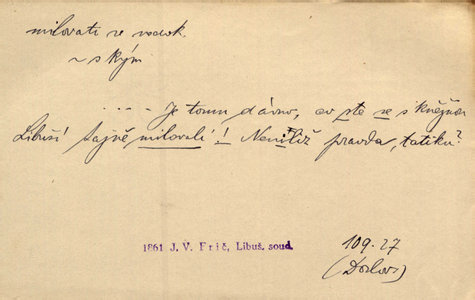 milovati se
~ s kým
.... Je tomu dávno, co jste se s kněžnou
Libuší tajně milovali! Není-liž pravda, tatíku?
1861 J. V. Frič, Libuš. soud.
109.27